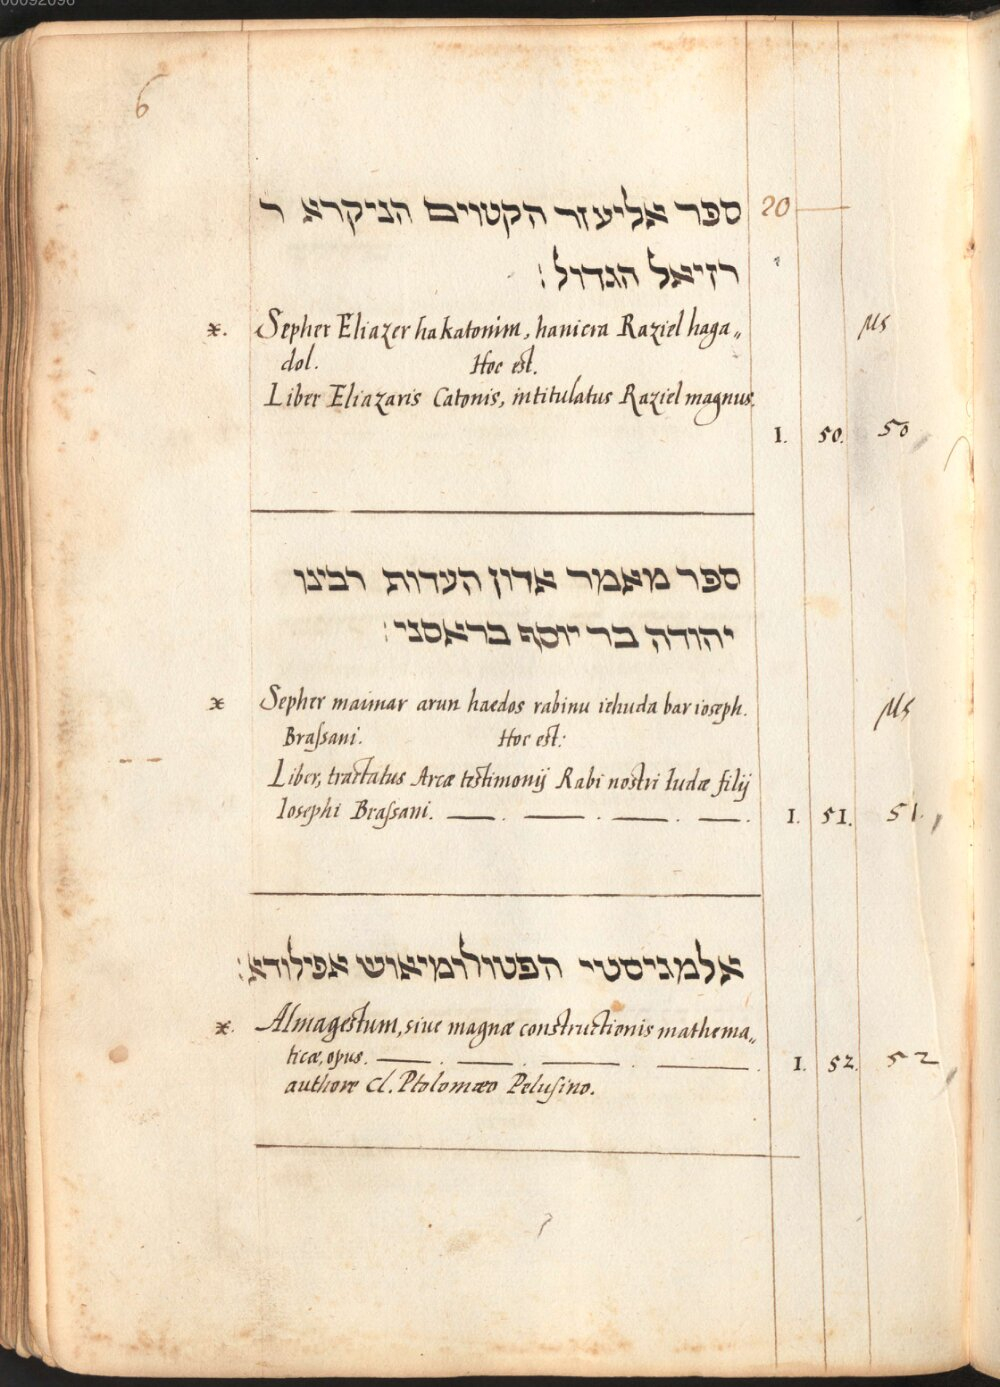 00092096
6
ספר אליעזר הקטוים הניקרא ר 20
רזיאל הגדול :
x. Sepher Eliazer ha katonim, hanicra Raziel haga„ Ms
dol. Hoc est.
Liber Eliazaris Catonis, intitulatus Raziel magnus.
I. 50. 50
ספר מאמר אדון העדות רבינו
יהודה בר יוסף בראסני :
x Sepher maimar arun haedos rabinu iehuda bar ioseph. Ms
Braſsani. Hoc est:
Liber, tractatus Arcæ testimonij Rabi nostri Iudæ filij
Iosephi Braſsani. — . — . — . — . I. 51. 51.
אלמגיסטי הפטולומיאוש אפילודא :
x. Almagestum, siue magnæ constructionis mathema„
ticæ, opus. — . — . — . — . I. 52. 52
authore Cl. Ptolomæo Peluſino.